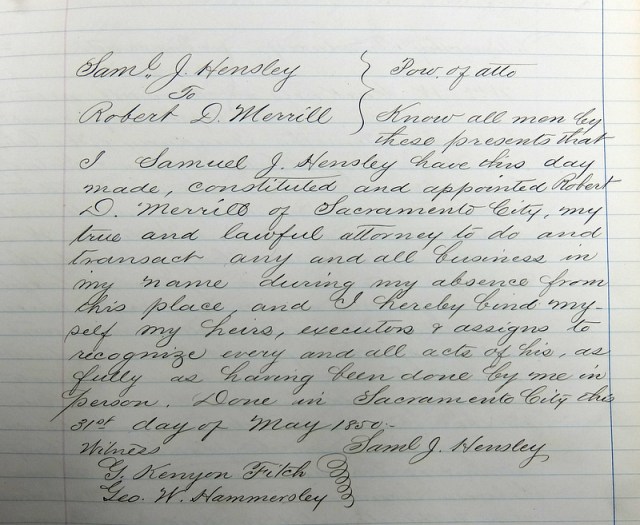 Saml. J. Hensley } Pow. of atto
To
Robert D. Merrill Know all men by
these presents that
I Samuel J. Hensley have this day
made, constituted and appointed Robert
D. Merrill of Sacramento City, my
true and lawful attorney to do and
transact any and all business in
my name during my absence from
this place, and I hereby bind my-
self my heirs, executors & assigns to
recognize every and all acts of his, as
fully as having been done by me in
person. Done in Sacramento City this
31st day of May 1850.-
Witness Saml J. Hensley
G. Kenyon Fitch
Geo. W. Hammersley